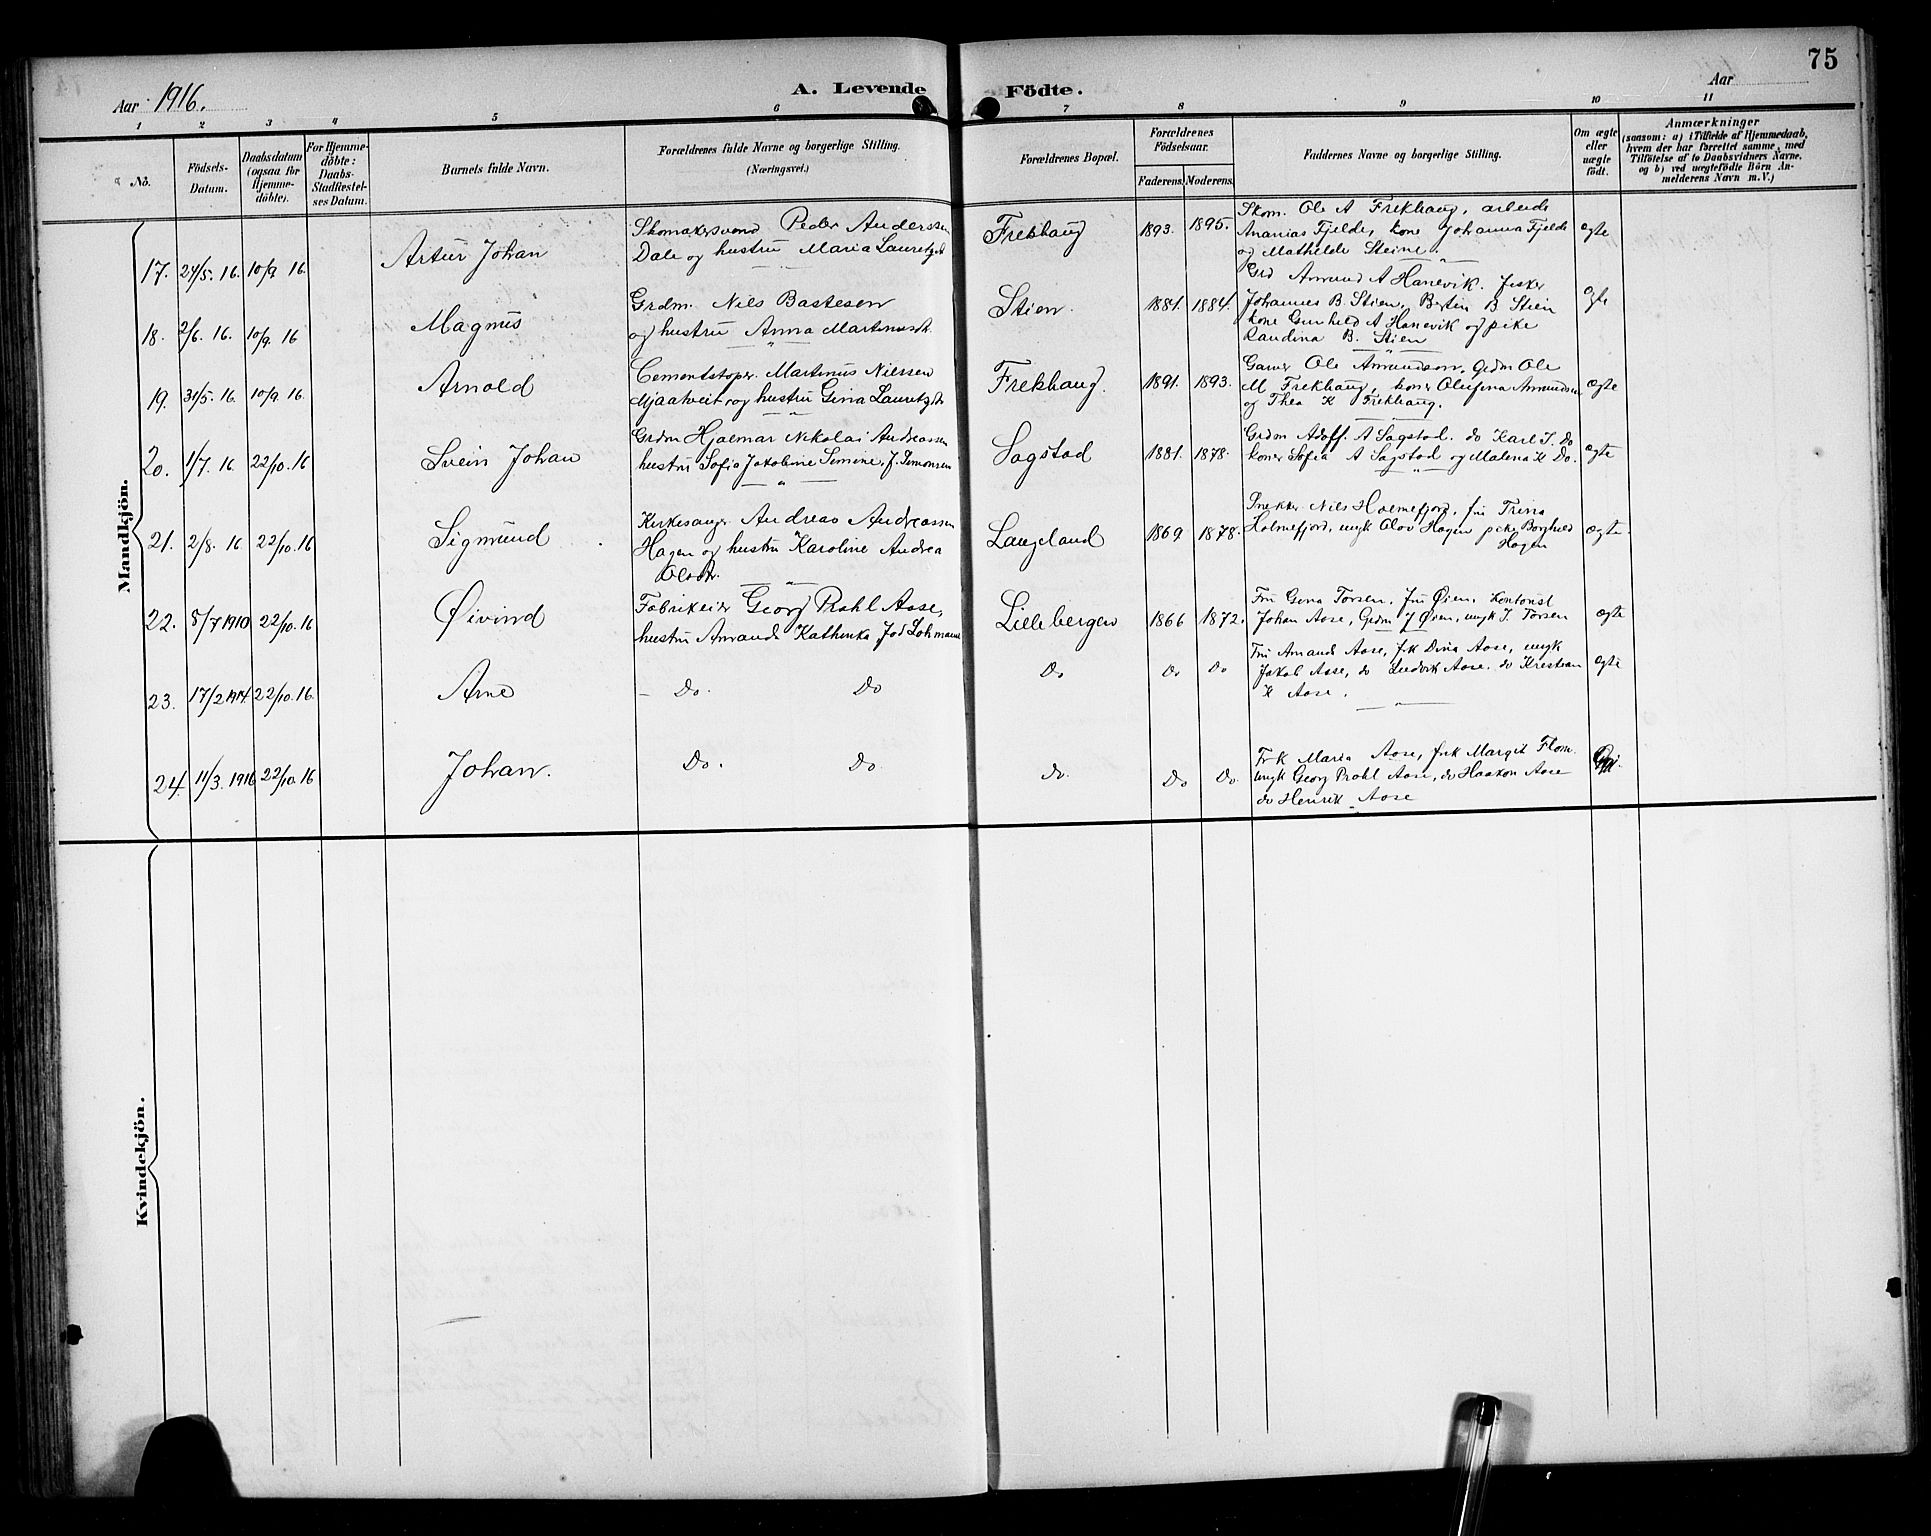 75
Aar 1916.
A. Levende Födte.
Aar
1 2 3 4 5 6 7 8 9 10 11
No.
Födsels-Datum.
Daabsdatum (ogsaa for Hjemme-döbte).
For Hjemme-döbte: Daabs-Stadfæstel-ses Datum.
Barnets fulde Navn.
Forældrenes fulde Navne og borgerlige Stilling. (Næringsvei.)
Forældrenes Bopæl.
Forældrenes Födselsaar.
Faderens. Moderens.
Faddernes Navne og borgerlige Stilling.
Om ægte eller uægte födt.
Anmærkninger
(saasom: a) i Tilfælde af Hjemmedaab,
hvem der har forrettet samme, med
Tilföielse af to Daabsvidners Navne,
og b) ved uægtefödte Börn An-
melderens Navn m. V.)
Mandkjön.
17. 24/5. 16. 10/9 16 Artur Johan
Skomakersvend Peder Anderssen
Dale og hustru Maria Lauretzdt
Frekhaug 1893. 1895.
Skom. Ole A Frekhaug, arbeide
Ananias Fjelde, kone Johanna Fjelde
og Mathilde Steine.
ægte
18. 2/6. 16. 10/9. 16 Magnus
Grdm. Nils Bastesen
og hustru Anna Martinusdt.
Stien. 1881. 1884.
Grd Amund A Hanevik. Fisker
Johannes B. Stien, Bertin B Stien
kone Gunhild A Hanevik og pike
Randina B. Stien
ægte
19. 31/5. 16. 10/9. 16 Arnold
Cementstøper. Martinus Nielsen
Mjaatveit og hustru Gina Lauretzdt
Frekhaug. 1891. 1893.
Garver Ole Amundsen, Grdm Ole
M. Frekhaug, koner Olufina Amundsen
og Thea K Frekhaug.
ægte
20. 1/7. 16. 22/10. 16 Svein Johan
Grdm Hjalmar Nikolai Andreassen
hustru Sofie Jakobine Simine, f. Simonsen
Sagstad 1881. 1878.
Grdm Adolf. A Sagstad. do Karl J. Do
koner Sofia A Sagstad og Malena K Do.
ægte
21. 2/8. 16 22/10. 16 Sigmund
Kirkesanger Andreas Andreassen
Hagen og hustru Karoline Andrea
Olsdt.
Langeland 1869 1878.
Snekker Nils Holmefjord, fru Trina
Holmefjord, ungk Olov Hagen pike Borghild
Hagen
ægte.
22. 5/7 1910 22/10. 16 Øivind
Fabrikeier Georg Prahl Aase,
hustru Amanda Kathinka fød Lohmann
Lillebergen 1866 1872.
Fru Gina Torsen, fru Øien, Kontorist
Johan Aase, Grdm J Øien, ungk J. Torsen
ægte
23. 17/2 1914. 22/10. 16. Arne
- Do. Do
Do Do Do
Fru Amanda Aase, frk Dina Aase, ungk
Jakob Aase, do Ludvik Aase. do Kristian
K Aase.
ægte
24. 11/3. 1916 22/10. 16 Johan.
Do. Do
do. Do Do
Frk Maria Aase, frk Margit Flom.
ungk Georg Prahl Aase, do Haakon Aase
do Henrik Aase
Kvindekjön.